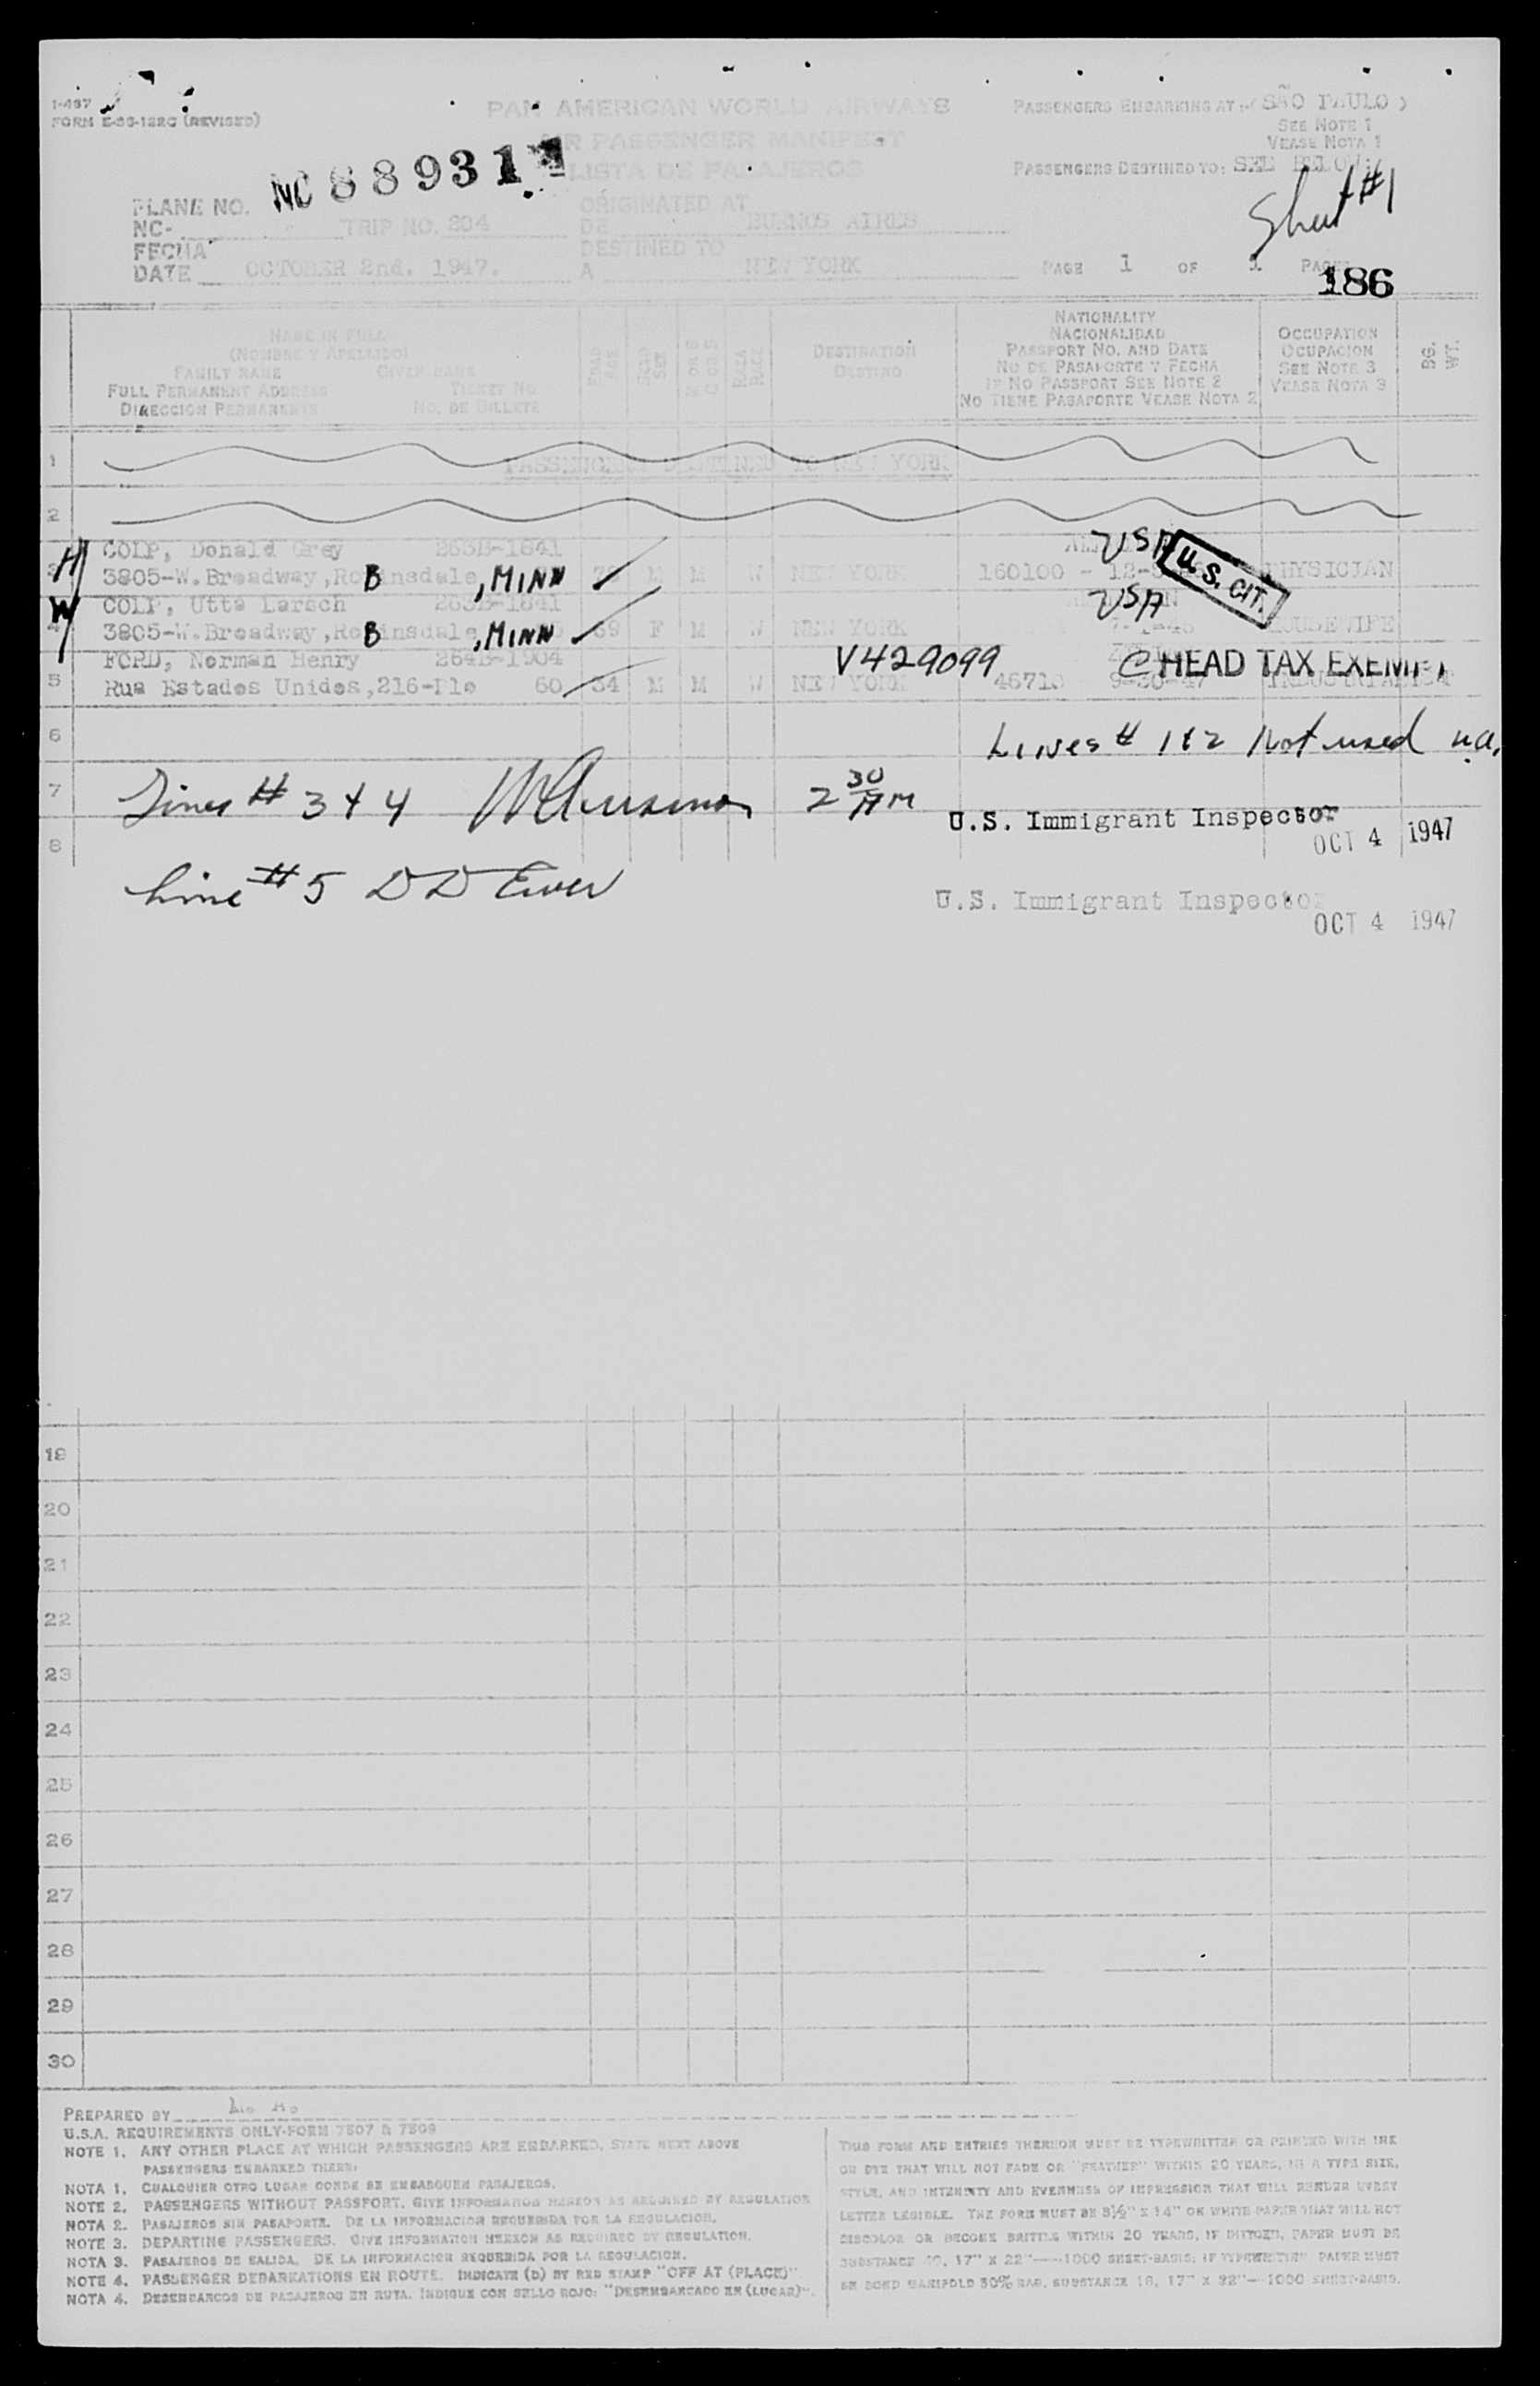 I-487
FORM E-SS-122C (REVISED)
PAN AMERICAN WORLD AIRWAYS
AIR PASSENGER MANIFEST
LISTA DE PASAJEROS
PASSENGERS EMBARKING AT: (SÃO PAULO)
SEE NOTE 1
VEASE NOTA 1
PASSENGERS DESTINED TO: SEE BELOW
Sheet #1
PLANE NO.
NC-
NC 88931
TRIP NO. 204
FECHA
DATE OCTOBER 2nd. 1947.
ORIGINATED AT
DE BUENOS AIRES
DESTINED TO
A NEW YORK
PAGE 1 OF 1 PAGES
186
NAME IN FULL
(NOMBRE Y APELLIDO)
FAMILY NAME GIVEN NAME
FULL PERMANENT ADDRESS TICKET NO
DIRECCION PERMANENTE NO. DE BILLETE
EDAD
AGE
SEXO
SEX
M OR S
C O S
RAZA
RACE
DESTINATION
DESTINO
NATIONALITY
NACIONALIDAD
PASSPORT NO. AND DATE
NO DE PASAPORTE Y FECHA
IF NO PASSPORT SEE NOTE 2
NO TIENE PASAPORTE VEASE NOTA 2
OCCUPATION
OCUPACION
SEE NOTE 3
VEASE NOTA 3
BG.
WT.
1 PASSENGERS DESTINED TO NEW YORK
2
H COLP, Donald Grey 263B-1641 USA U.S. CIT.
3 3805-W.Broadway,Robinsdale, MINN M M W NEW YORK 160100 - PHYSICIAN
W COLP, Utta Larsch 263B-1841 USA
4 3805-W.Broadway,Robinsdale, MINN 39 F M W NEW YORK HOUSEWIFE
FORD, Norman Henry 264B-1904 V429099 C HEAD TAX EXEMPT
5 Rua Estados Unidos,216-Plo 60 34 M M W NEW YORK 9-30-47
6 Lines # 1 & 2 Not used
7 Lines # 3 + 4 2 30 AM
U.S. Immigrant Inspector
8 OCT 4 1947
Line # 5 D D
U.S. Immigrant Inspector
OCT 4 1947
19
20
21
22
23
24
25
26
27
28
29
30
PREPARED BY
U.S.A. REQUIREMENTS ONLY-FORM 7507 & 7509
NOTE 1. ANY OTHER PLACE AT WHICH PASSENGERS ARE EMBARKED, STATE NEXT ABOVE
PASSENGERS EMBARKED THERE.
NOTA 1. CUALQUIER OTRO LUGAR DONDE SE EMBARQUEN PASAJEROS.
NOTE 2. PASSENGERS WITHOUT PASSPORT. GIVE INFORMATION HEREON AS REQUIRED BY REGULATION
NOTA 2. PASAJEROS SIN PASAPORTE. DE LA INFORMACION REQUERIDA POR LA REGULACION.
NOTE 3. DEPARTING PASSENGERS. GIVE INFORMATION HEREON AS REQUIRED BY REGULATION.
NOTA 3. PASAJEROS DE SALIDA. DE LA INFORMACION REQUERIDA POR LA REGULACION.
NOTE 4. PASSENGER DEBARKATIONS EN ROUTE. INDICATE (D) BY RED STAMP "OFF AT (PLACE)"
NOTA 4. DESEMBARCOS DE PASAJEROS EN RUTA. INDIQUE CON SELLO ROJO: "DESEMBARCADO EN (LUGAR)".
THIS FORM AND ENTRIES THEREON MUST BE TYPEWRITTEN OR PRINTED WITH INK
OR DYE THAT WILL NOT FADE OR "FEATHER" WITHIN 20 YEARS, IN A TYPE SIZE,
STYLE, AND INTENSITY AND EVENNESS OF IMPRESSION THAT WILL RENDER EVERY
LETTER LEGIBLE. THE FORM MUST BE 8½" X 14" ON WHITE PAPER THAT WILL NOT
DISCOLOR OR BECOME BRITTLE WITHIN 20 YEARS. IF DITTOED, PAPER MUST BE
SUBSTANCE 40, 17" X 22"—1000 SHEET-BASIS; IF TYPEWRITTEN PAPER MUST
BE BOND MANIFOLD 50% RAG, SUBSTANCE 16, 17" X 22"—1000 SHEET-BASIS.